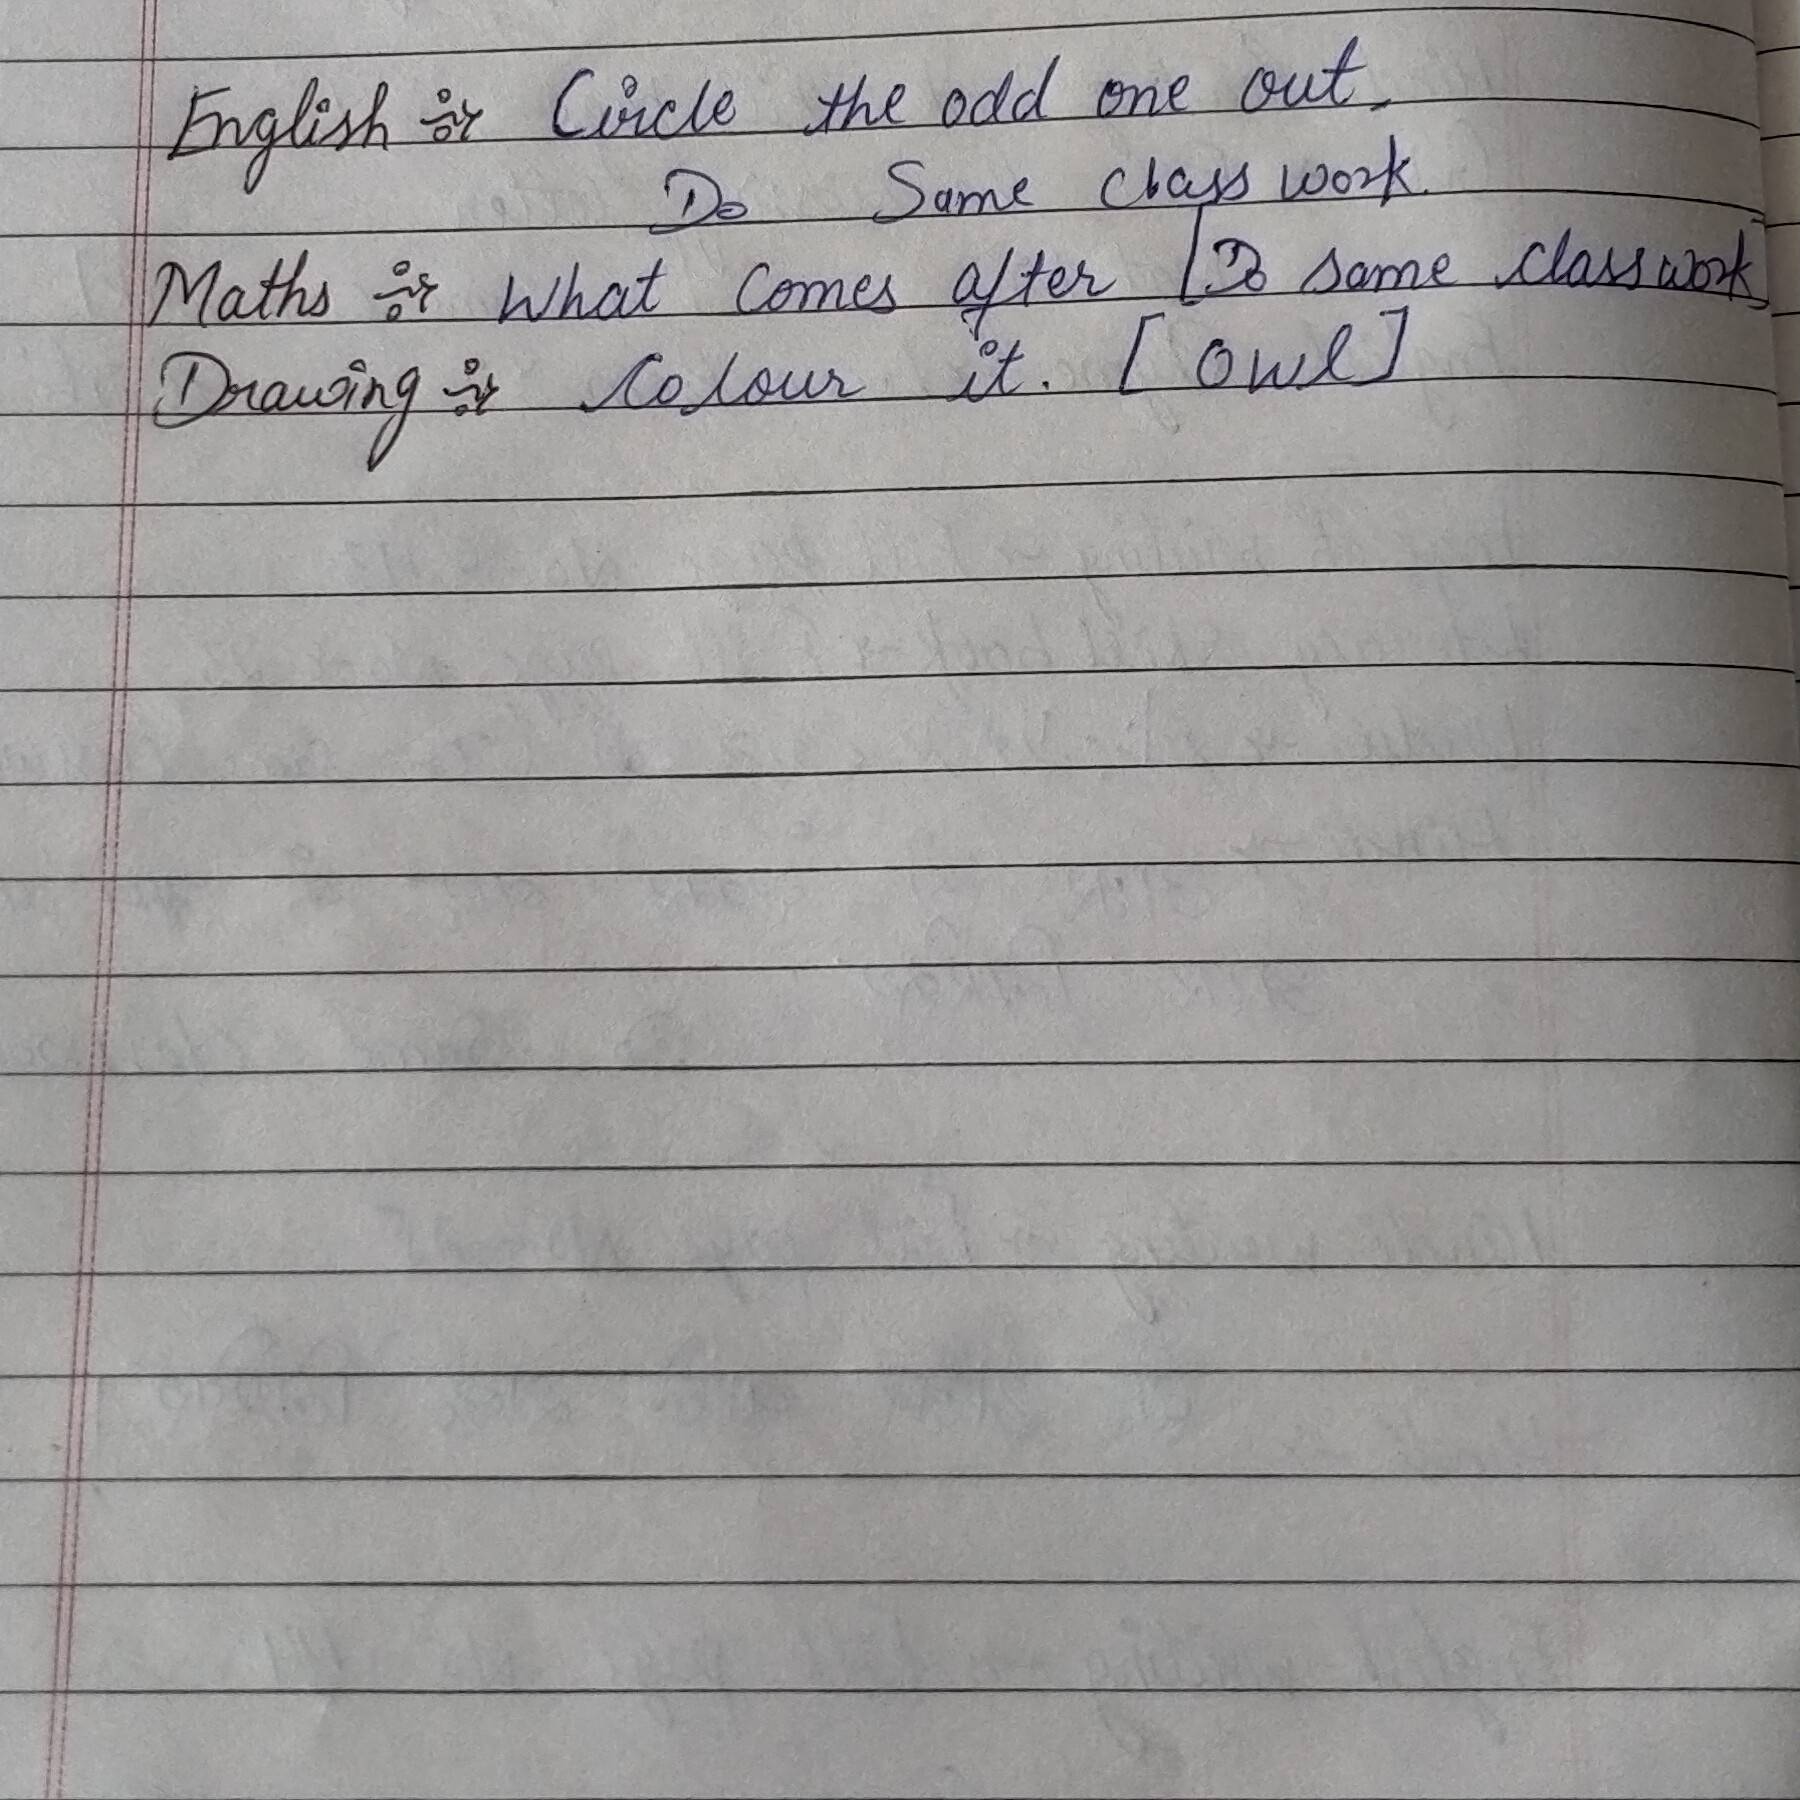 English :- Circle the odd one out.
Do Same class work.
Maths :- What comes after [Do same class work]
Drawing :- Colour it. [Owl]